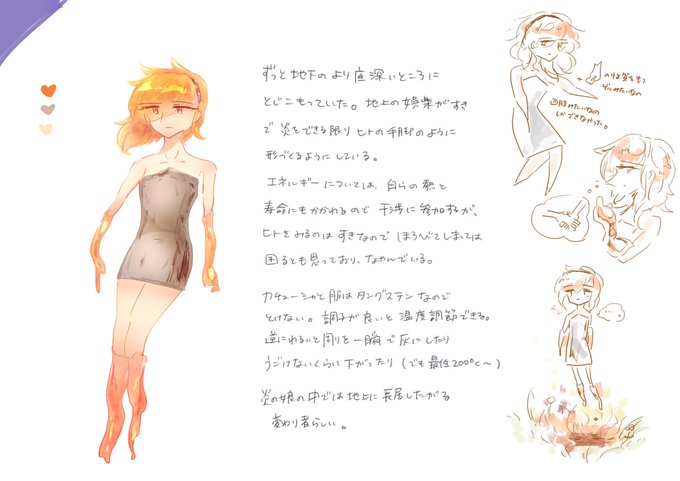 ずっと地下のより底深いところに
とじこもっていた。地上の娯楽がすき
で炎をできる限りヒトの手脚のように
形づくるようにしている。
エネルギーについては、自らの熱と
寿命にもかかわるので干渉に参加するが、
ヒトをみるのはすきなのでほろびてしまっては
困るとも思っており、なやんでいる。
カチューシャと服はタングステンなので
とけない。調子が良いと温度調節できる。
逆にわるいと剛を一瞬で灰にしたり
うごけないくらい下がったり(でも最低200℃〜)
炎の娘の中では地上に長居したがる
変わり者らしい。
しかできなかった。